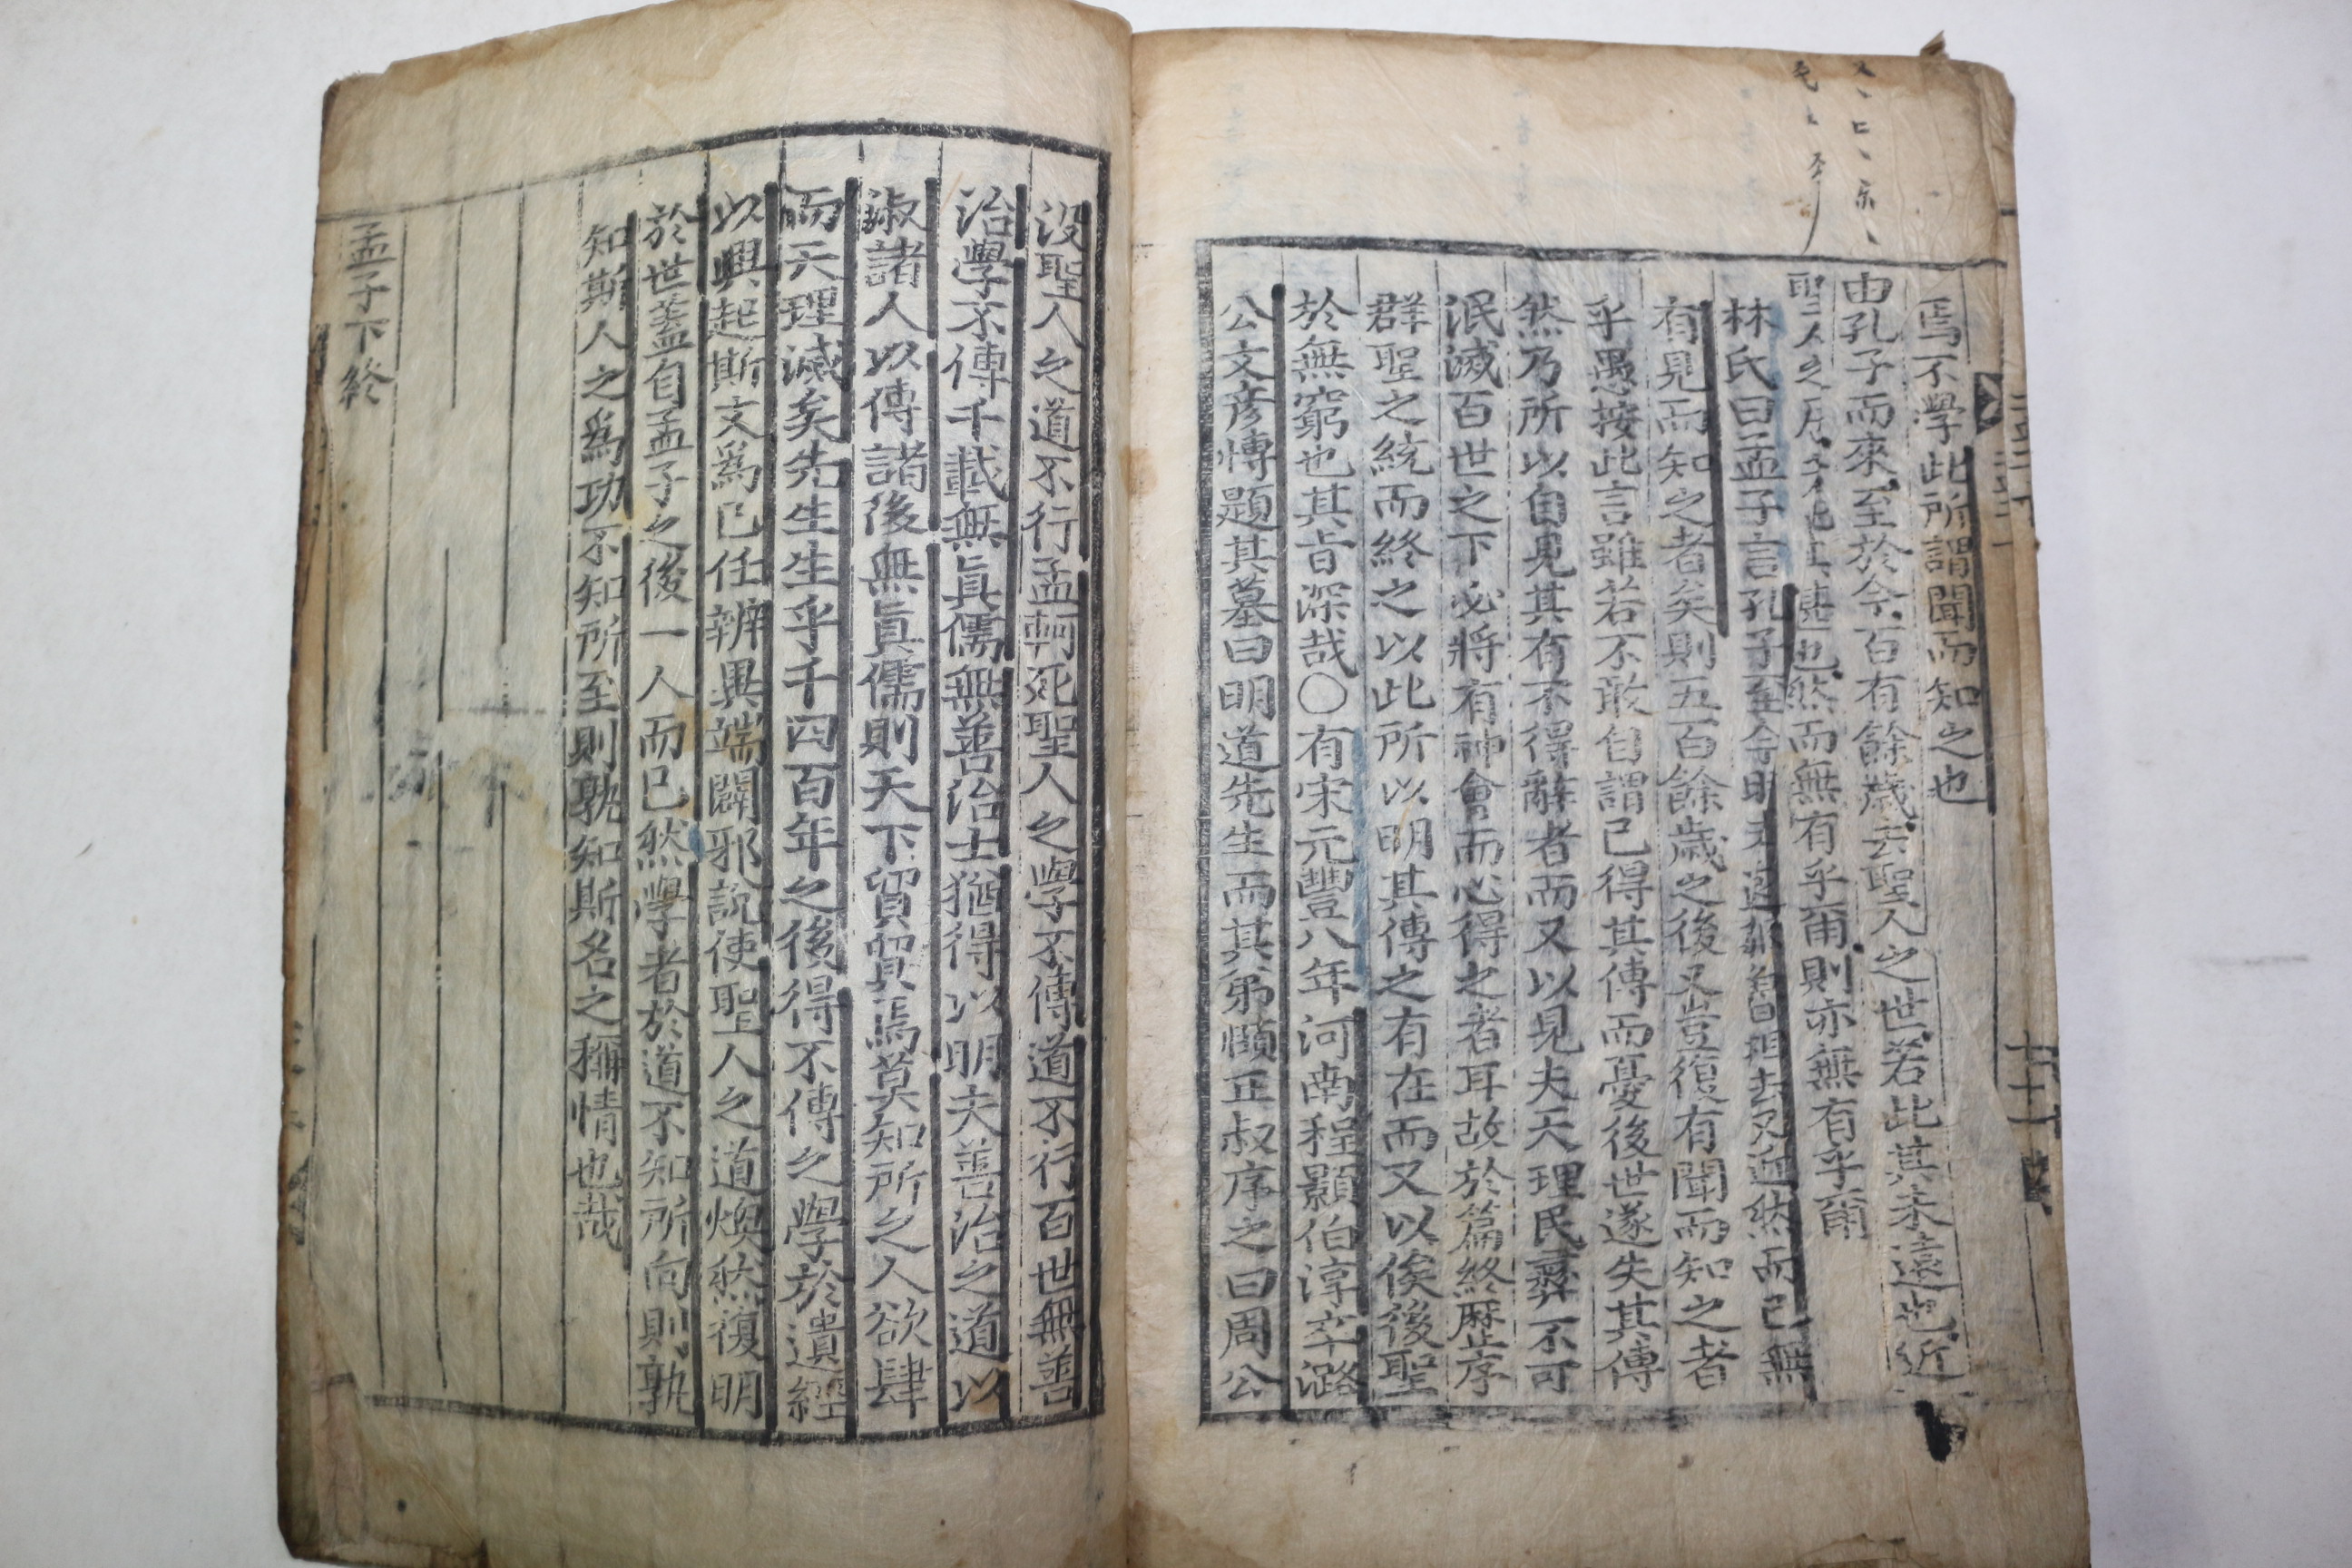 焉不學此所謂聞而知之也
由孔子而來至於今百有餘歲去聖人之世若此其未遠也近
聖人之居若此其甚也然而無有乎爾則亦無有乎爾
林氏曰孟子言孔子至今時未遠鄒魯相去又近然而已無
有見而知之者矣則五百餘歲之後又豈復有聞而知之者
乎愚按此言雖若不敢自謂已得其傳而憂後世遂失其傳
然乃所以自見其有不得辭者而又以見夫天理民彝不可
泯滅百世之下必將有神會而心得之者耳故於篇終歷序
群聖之統而終之以此所以明其傳之有在而又以俟後聖
於無窮也其旨深哉○有宋元豐八年河南程顥伯淳卒潞
公文彦博題其墓曰明道先生而其弟頤正叔序之曰周公
没聖人之道不行孟軻死聖人之學不傳道不行百世無善
治學不傳千載無眞儒無善治士猶得以明夫善治之道以
淑諸人以傳諸後無眞儒則天下貿貿焉莫知所之人欲肆
而天理滅矣先生生乎千四百年之後得不傳之學於遺經
以興起斯文爲己任辨異端闢邪說使聖人之道煥然復明
於世蓋自孟子之後一人而已然學者於道不知所向則孰
知斯人之爲功不知所至則孰知斯名之稱情也哉
孟子下終